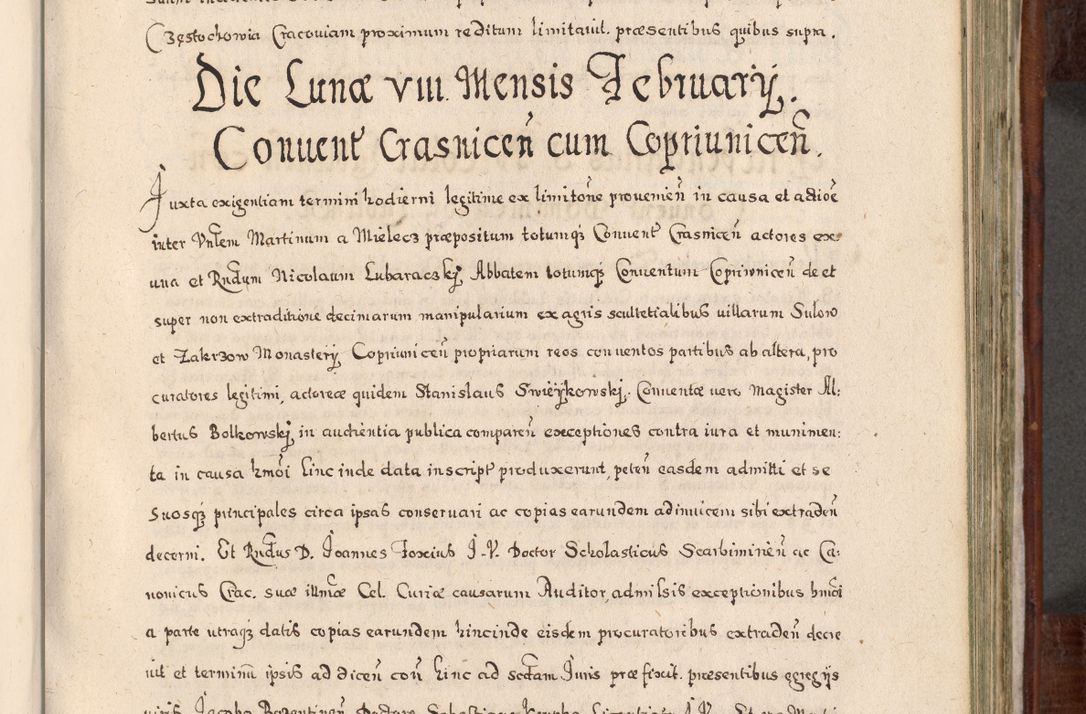 Częstochowia Cracouiam proximum reditum limitauit. præsentibus quibus supra.
Die Lunæ VIII. Mensis Februarij.
Conuent Crasnicen̄ cum Copriunicen̄.
Juxta exigentiam termini hodierni legitime ex limitōne prouenien̄ in causa et actioē
inter Vnlem Martinum a Mielecz præpositum totumq; Conuent Crasnicen̄ actores ex
una et Rndum Nicolaum Lubaraczkij Abbatem totumq; Conuentum Copriwnicen̄ de et
super non extraditione decimarum manipularium ex agris scultetialibus uillarum Sulow
et Zakrzow Monasterij Copriunicen̄ propriarum reos conuentos partibus ab altera, pro
curatores legitimi, actoreæ quidem Stanislaus Swieykowskij. Conuentæ uero Magister Al:
bertus Bolkowskij in audientia publica comparen̄ exceptiones contra iura et munimen:
ta in causa hmōi hinc inde data inscript produxerunt, peten̄ easdem admitti et se
suosq; principales circa ipsas conseruari ac copias earundem adinuicem sibi extraden̄
decerni. Et Rndus D. Joannes Foxius J. V. Doctor Scholasticus Scarbimirien̄ ac Ca:
nonicus Crac. suæ illmæ Cel. Curiæ causarum Auditor, admissis exceptionibus hmōi
a parte utraq; datis copias earundem hincinde eisdem procuratoribus extraden̄ decre
uit et terminū ipsis ad dicen̄ con̄ hinc ad sectam Juris præfixit. præsentibus egregijs
uiris Jacobo